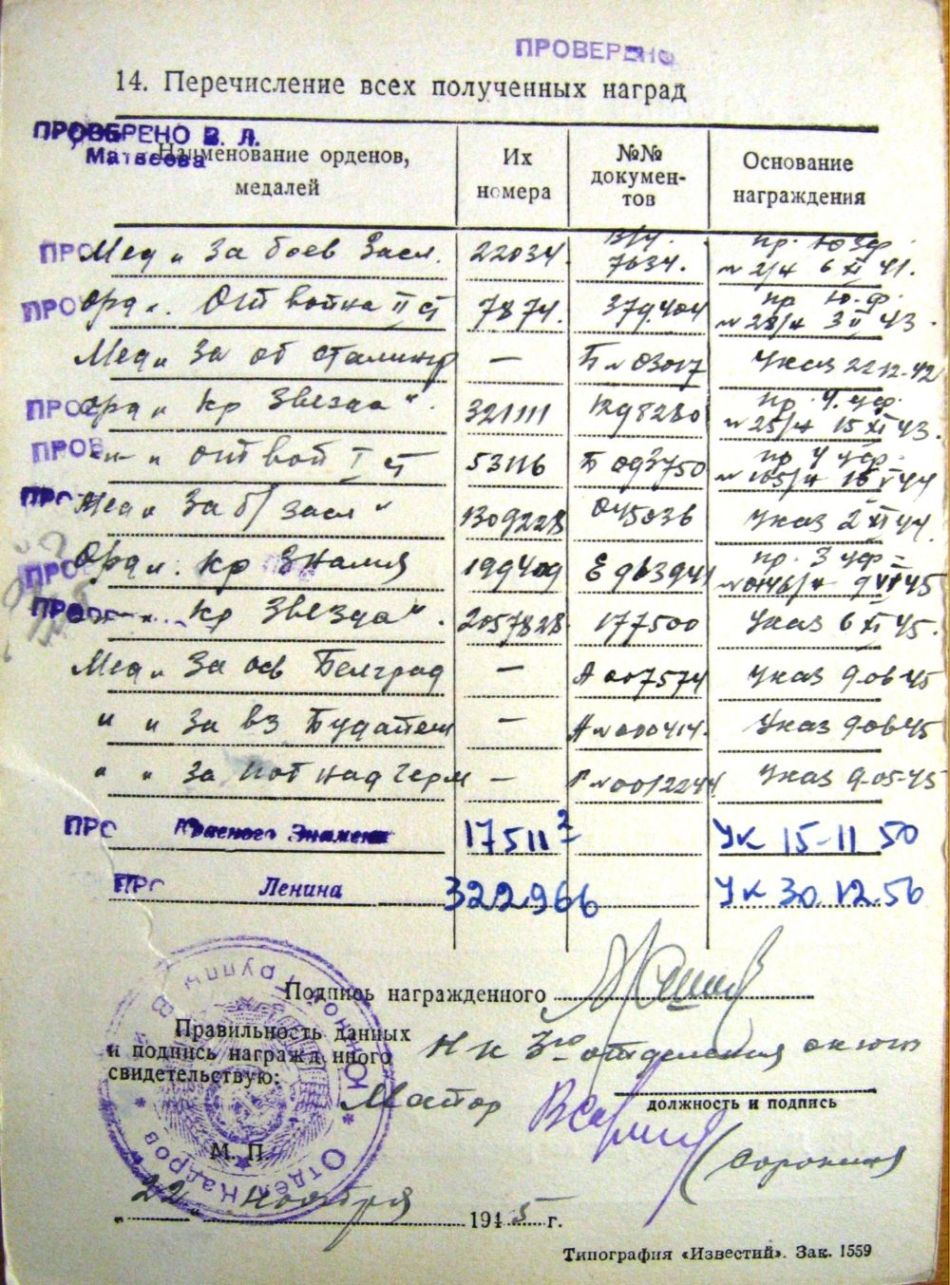 ПРОВЕРЕНО
14. Перечисление всех полученных наград
ПРОВЕРЕНО В. Л.
Матвеева
Наименование орденов, медалей | Их номера | №№ документов | Основание награждения
ПРО Мед „ За боев Засл. 22034. В/У. 7634. пр. Ю зф. № 2/н 6 XI 41.
ПРО Орд „. От войны II ст 7874. 379404 пр Ю.ф. № 28/н 3 II 43.
Мед „ За об Сталингр — Б № 03017 Указ 22-12-42
ПРОВ Орд „ Кр Звезда“. 321111 пр. 4. уф. № 25/н 15 XI 43.
ПРОВ -„- „ От вой I ст 53116 Б 093750 пр 4 уф. № 105/н
ПРО Мед „ За б/засл “ 1309228 045036 Указ 2 XI 44.
ПРО Орд „. Кр Знамя 199409 Е 963941 пр. 3 уф № 0146/н 9 VI 45
ПРО -„- „ Кр Звезда“. 2057828 177500 Указ 6 XI 45.
Мед „ За осв Белград — А 007574 Указ 9-06-45
„ „ За вз Будапеш — А № 000414. Указ 9-06-45
„ „ За поб над Герм — № 0012244 Указ 9-05-45
ПРО Красного Знамени 17511 2 Ук 15-11 50
ПРО Ленина 322966 Ук 30.12.56
Подпись награжденного
Правильность данных
и подпись награжденного
свидетельствую:
Н-к 3го отделения ок югв
Майор
должность и подпись
(Сорокин
М. П.
Отдел Кадров Южной Группы В
„22„ ноября 1945 г.
Типография «Известий». Зак. 1559